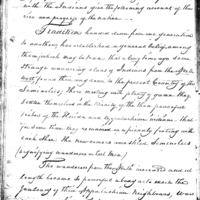 with the Indians give the following account of the
rise and progress of the nation.
Tradition handed down from one generation
to another has established a general belief among
them (which may be true) that a long time ago some
strange wandering class of Indians from the
West found their way down to the present Country of the
Seminoles; there meeting with plenty of game they
settled themselves in the vicinity of the then powerful
tribes of the Florida and Appalachian Indians. that
for some time they remained on a friendly footing with
each other. The new comers were styled Seminoles
(signifying wanderers or lost Men)
The wanderers from the North increased and at
length became so powerful a body as to excite the
Jealousy of their Appalachian Neighbours. Wars